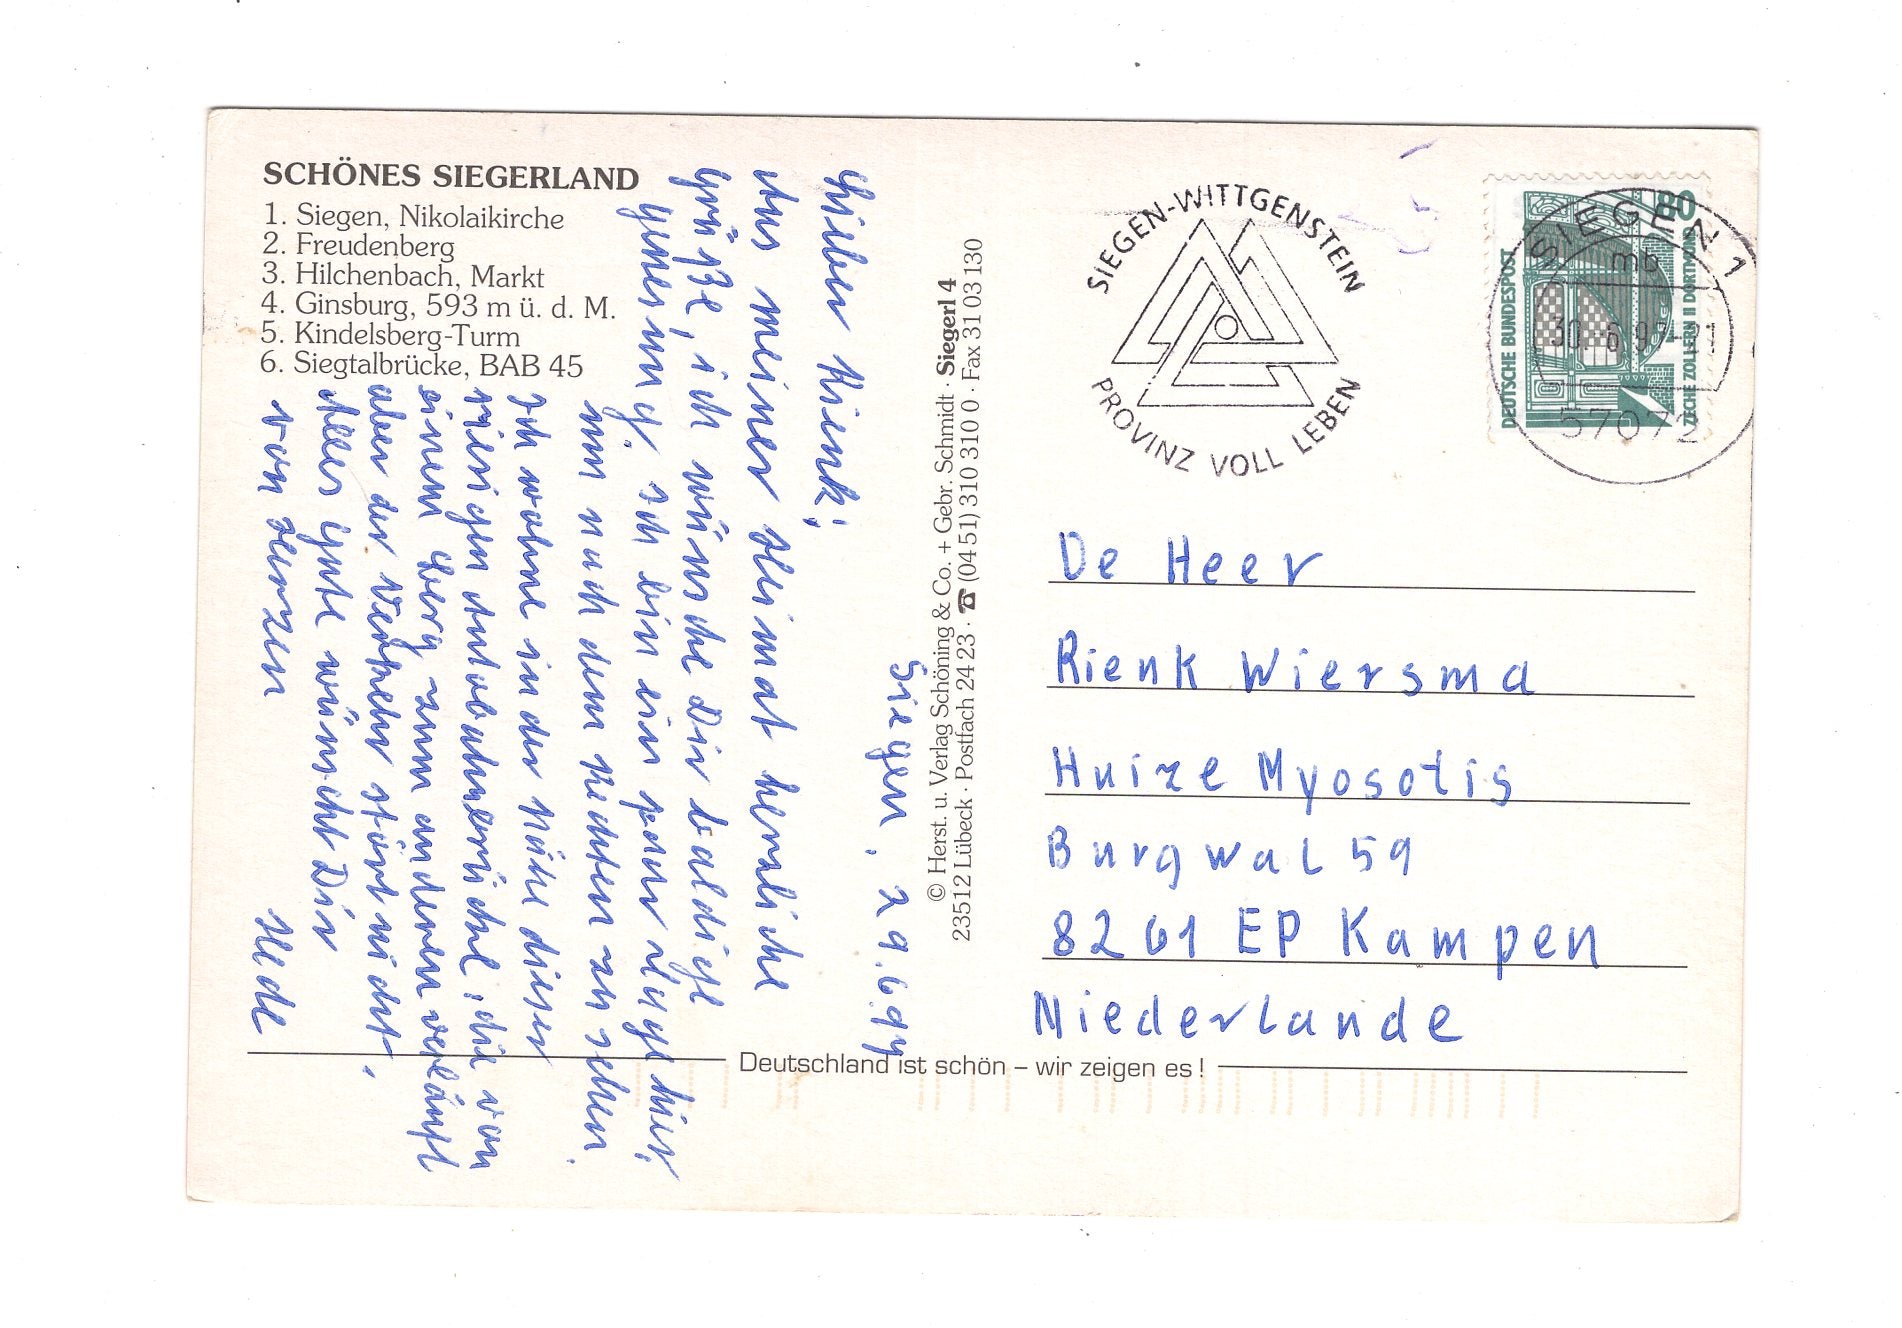 SCHÖNES SIEGERLAND
1. Siegen, Nikolaikirche
2. Freudenberg
3. Hilchenbach, Markt
4. Ginsburg, 593 m ü. d. M.
5. Kindelsberg-Turm
6. Siegtalbrücke, BAB 45
Siegen, 29.6.94
Lieber Rienk;
Aus meiner Heimat herzliche
Grüße, ich wünsche Dir baldige
Genesung. Ich bin ein paar Tage hier,
um nach dem Rechten zu sehen.
Ich wohne in der Nähe dieser
riesigen Autobahnbrücke, die von
einem Berg zum anderen verläuft
aber der Verkehr stört nicht.
Alles Gute wünscht Dir
von Herzen
© Herst. u. Verlag Schöning & Co. + Gebr. Schmidt · Siegerl 4
23512 Lübeck · Postfach 24 23 · ☎ (04 51) 310 310 0 · Fax 31 03 130
SIEGEN-WITTGENSTEIN
PROVINZ VOLL LEBEN
DEUTSCHE BUNDESPOST
80
ZECHE ZOLLERN II DORTMUND
SIEGEN 1
mb
30.-6.94-21
57072
De Heer
Rienk Wiersma
Huize Myosotis
Burgwal 59
8261 EP Kampen
Niederlande
Deutschland ist schön – wir zeigen es!